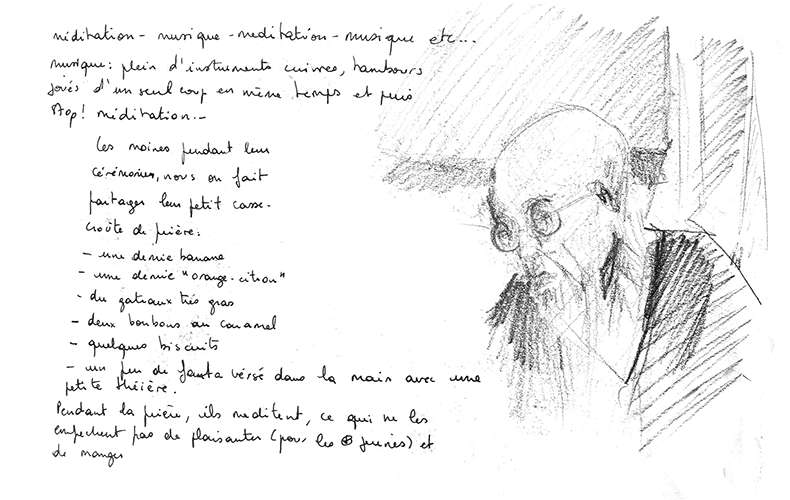 méditation - musique - meditation - musique etc...
musique : plein d'instruments cuivres, tambours
joués d'un seul coup en même temps et puis
Stop! méditation.-
Les moines pendant leur
cérémonies, nous on fait
partager leur petit casse-
croûte de prière:
- une demie banane
- une demie "orange-citron"
- du gateaux très gras
- deux bonbons au caramel
- quelques biscuits
- un peu de fanta versé dans la main avec une
petite théière.
Pendant la prière, ils meditent, ce qui ne les
empechent pas de plaisanter (pour les jeunes) et
de manger